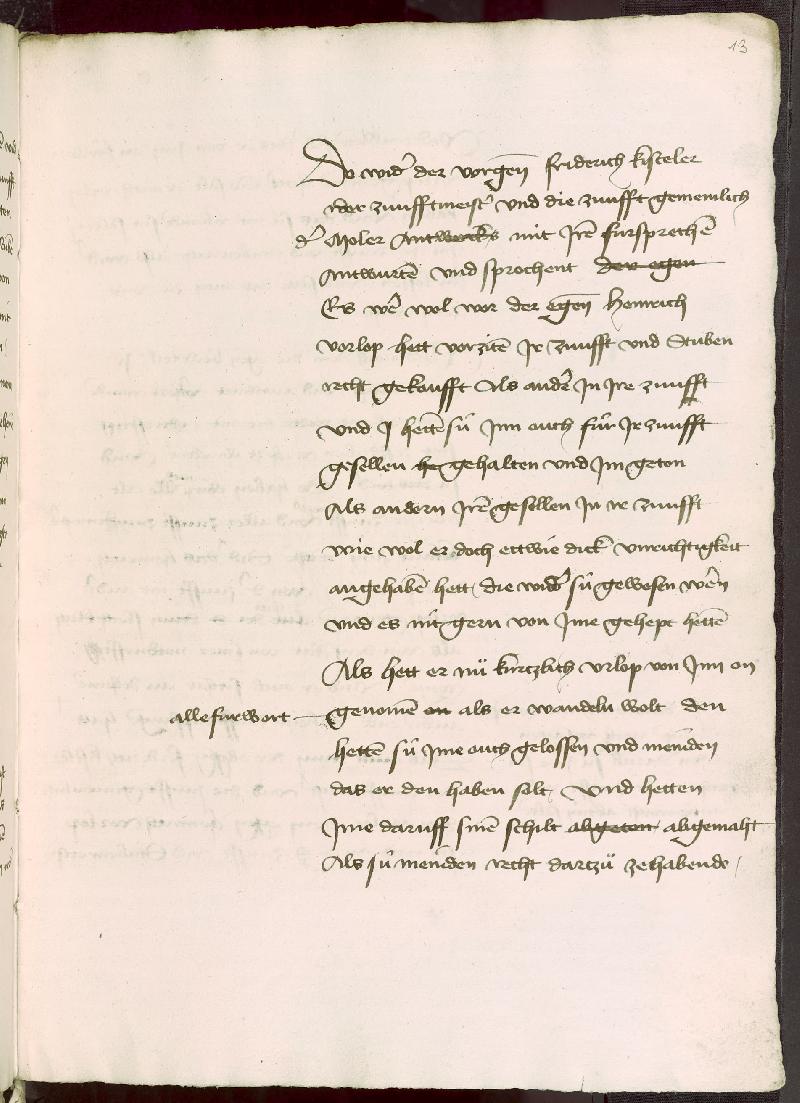 13
Do wid' der vorgen̄ friderich kisteler
der zunfftmeist' vnd die zunfft gemeinlich
d' Moler Antwercks mit Jrē fursprechē
Antwurtē vnd sprochent der egen
Es wē wol wor der egen̄ Heinrich
vorlop hett vorzitē Jr zunfft vnd Stuben
recht gekoufft Als ander Jn Jre zunfft
vnd hettē sú Jnn ouch fúr Jr zunfft
gesellen he gehalten vnd Jm geton
Als andern Jrē gesellen Jn ir zunfft
wie wol er doch ettwie dick vnrichtigkeit
angehabē hett die wid' sú gewesen wēn
vnd es nit gern von Jme gehept hettē
Als hett er nú kurtzlich vrlop von Jnn on
alle fúrwort genomē on als er wandeln wolt den
hettē sú Jme ouch gelossen vnd meinden
das er den haben solt Vnd hetten
Jme daruff sinē schilt abgeton abgemaht
Als sú meinden recht dartzú zehabende /